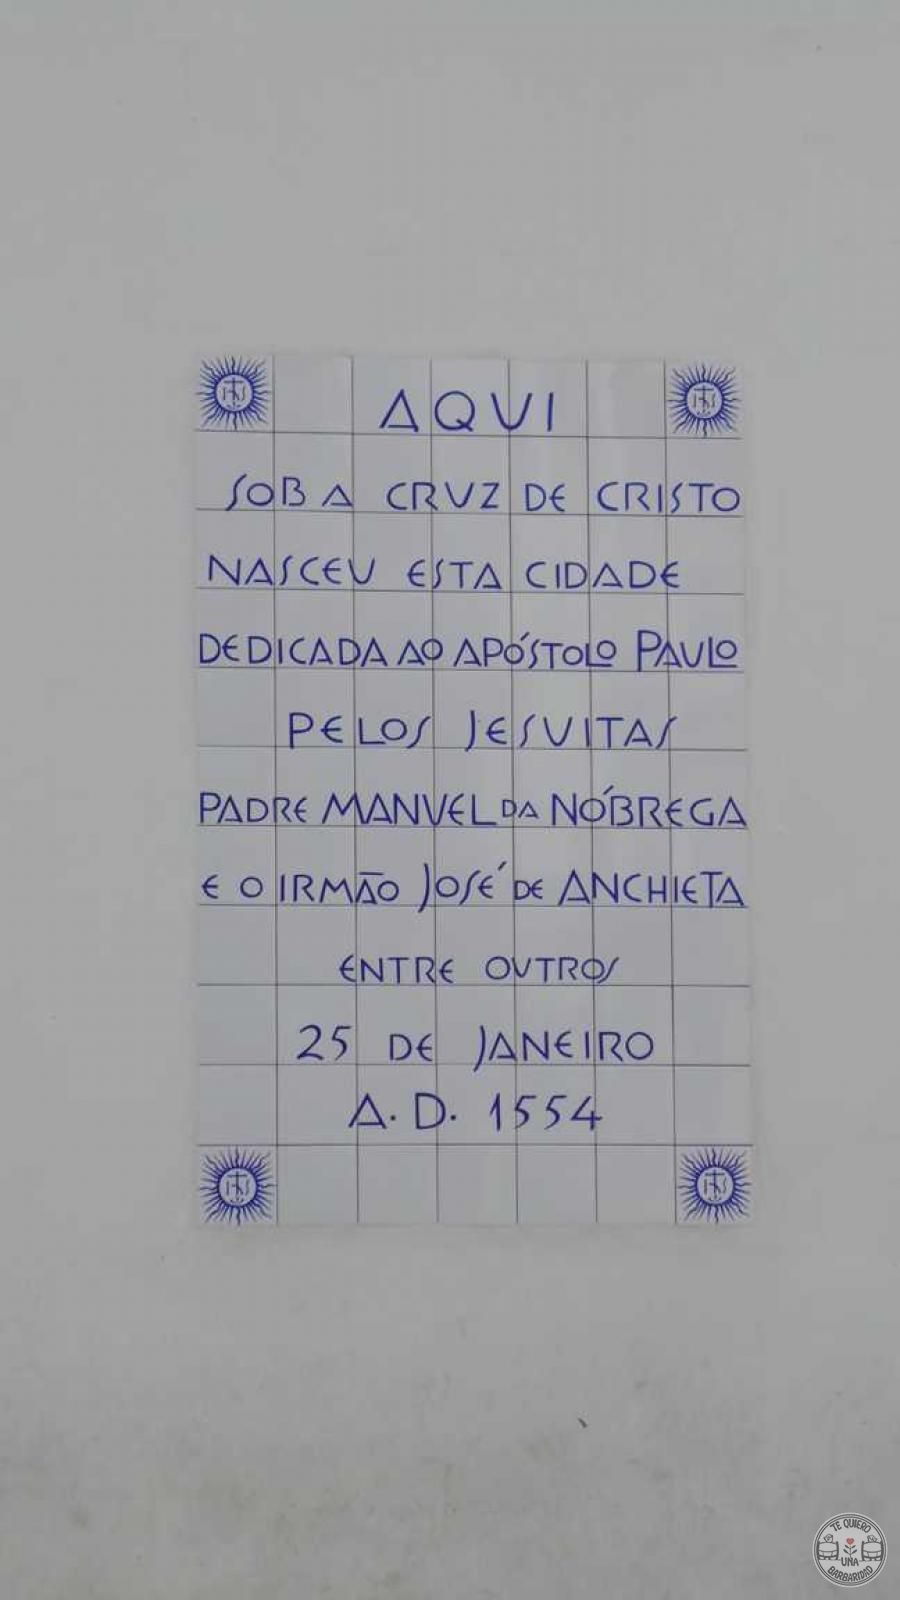 AQUI
SOB A CRUZ DE CRISTO
NASCEU ESTA CIDADE
DEDICADA AO APÓSTOLO PAULO
PELOS JESUITAS
PADRE MANUEL DA NÓBREGA
E O IRMÃO JOSÉ DE ANCHIETA
ENTRE OUTROS
25 DE JANEIRO
A. D. 1554
IHS IHS
IHS IHS
TE QUIERO
UNA
BARBARIDAD